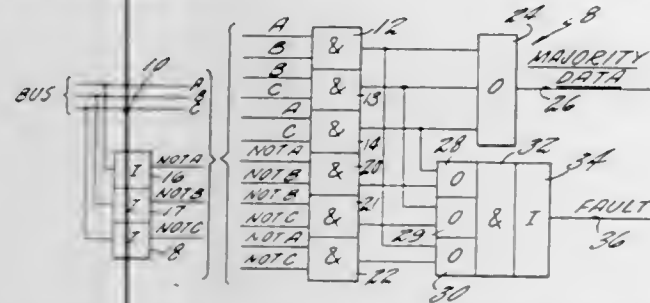 BUS
10
A
B
C
I
NOT A
16
I
NOT B
17
I
NOT C
8
A
B
&
12
B
C
&
13
A
C
&
14
NOT A
NOT B
&
20
NOT B
NOT C
&
21
NOT A
NOT C
&
22
24
8
O
MAJORITY
DATA
26
28
32
34
O
O
O
&
I
29
30
FAULT
36